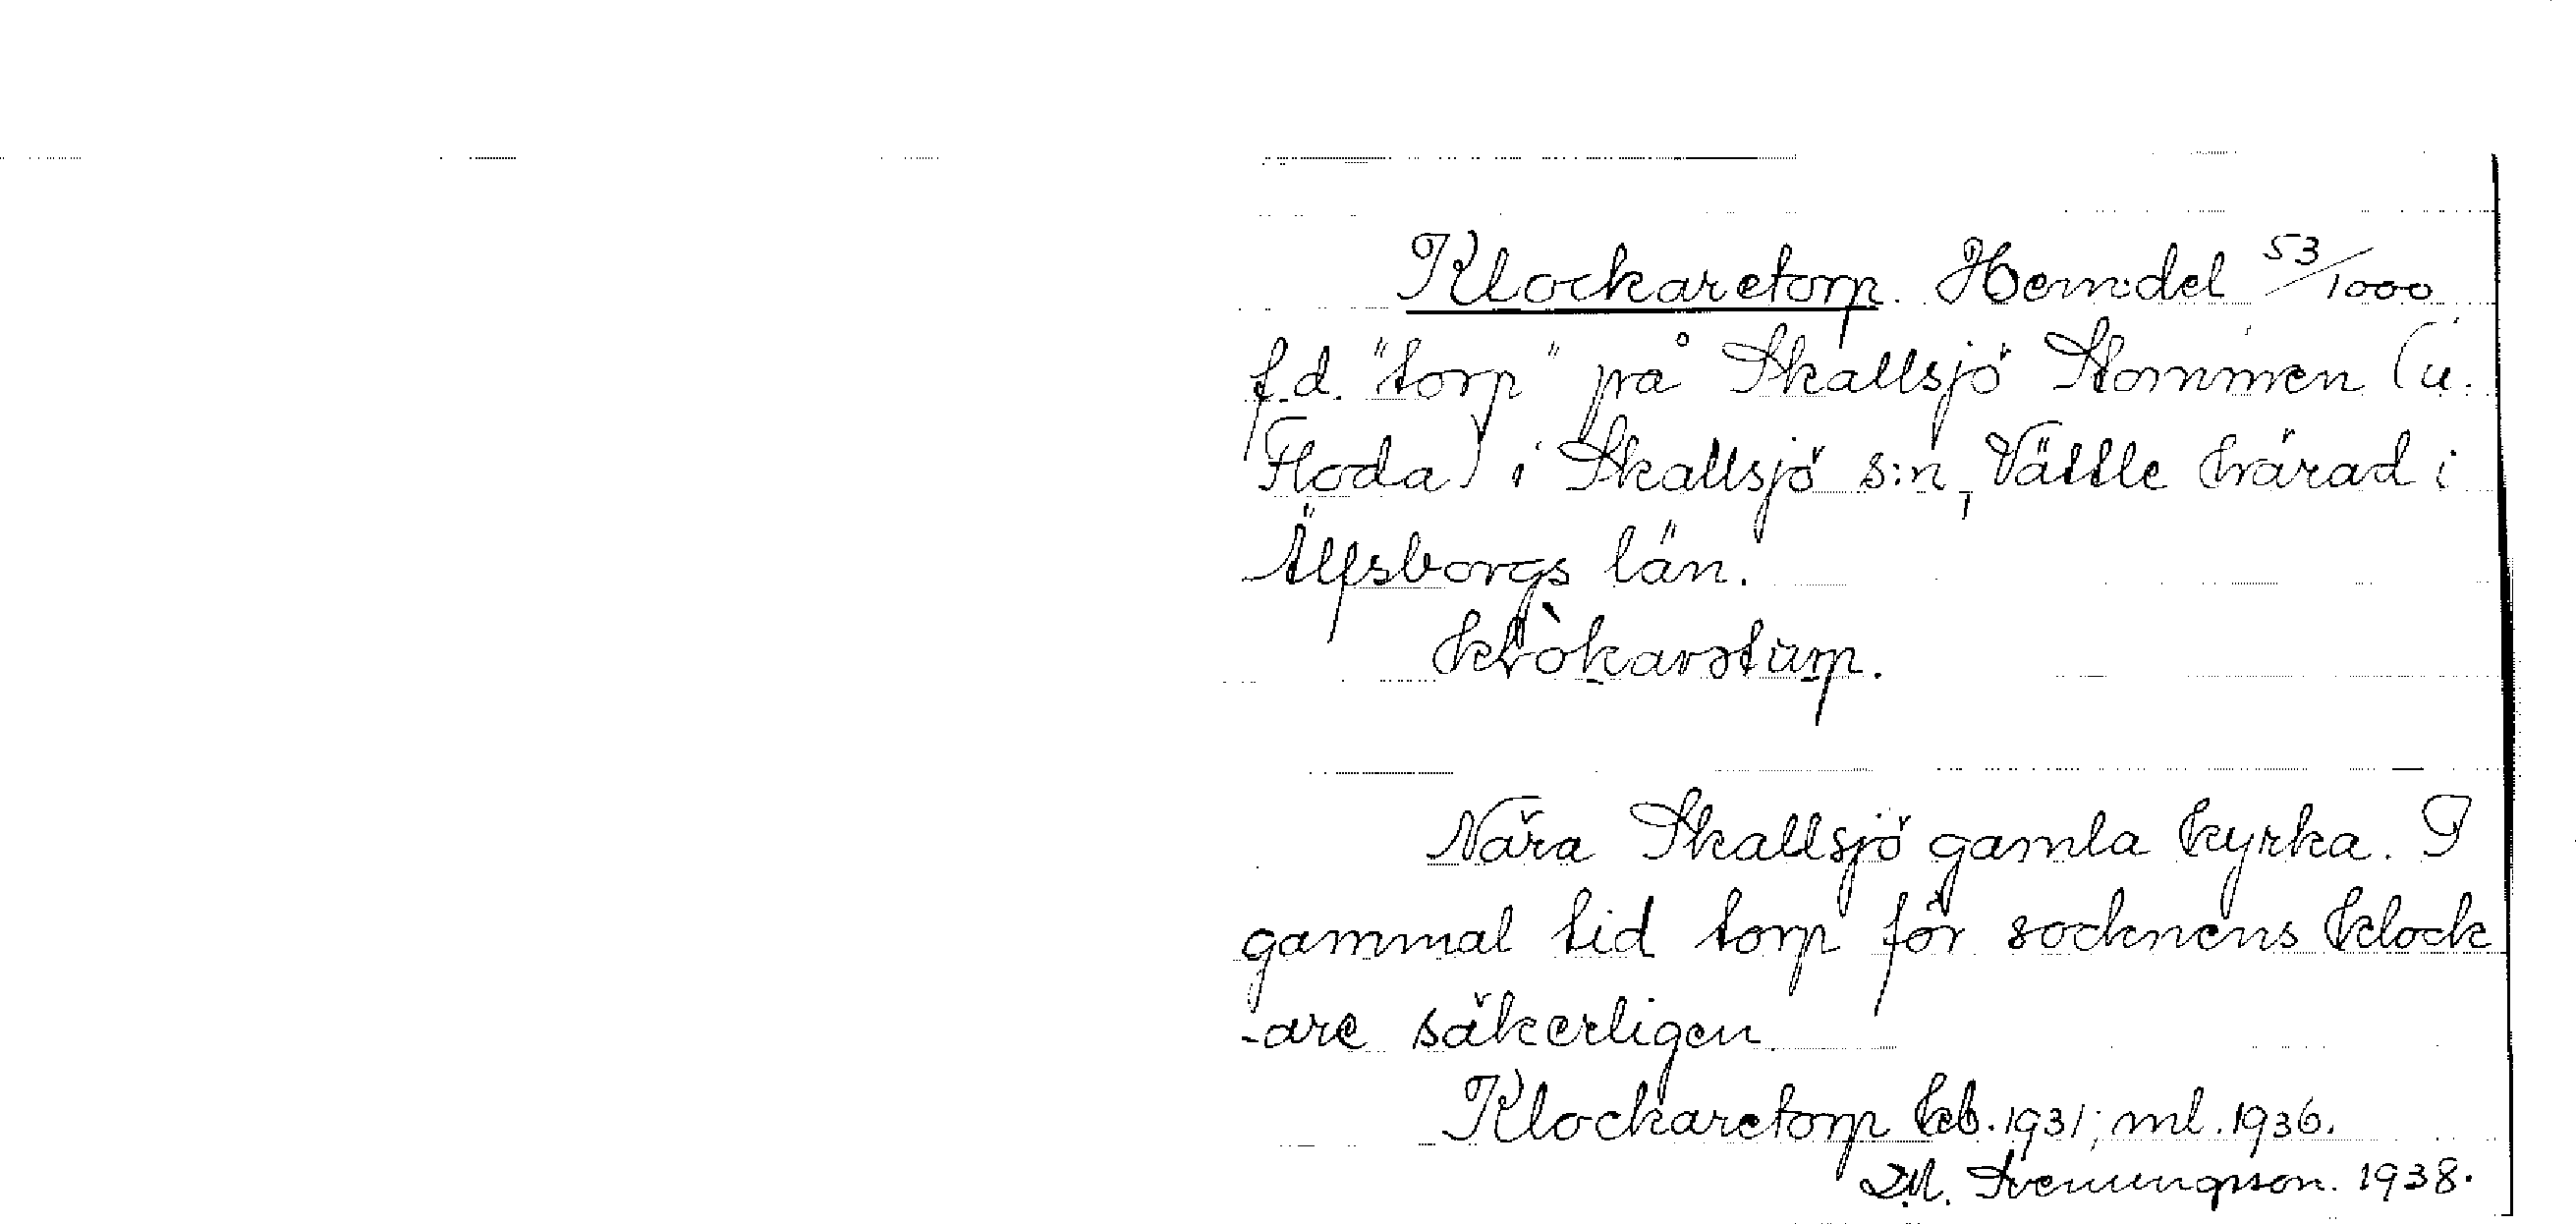 Klockaretorp. Hemdel 53/1000
f.d. "torp" på Skallsjö Stommen (u.
Floda) i Skallsjö s:n, Vättle härad i
Älfsborgs län.
Nära Skallsjö gamla kyrka. I
gammal tid torp för socknens klock
-are säkerligen
Klockaretorp kb. 1931; ml. 1936.
Svenungsson. 1938.